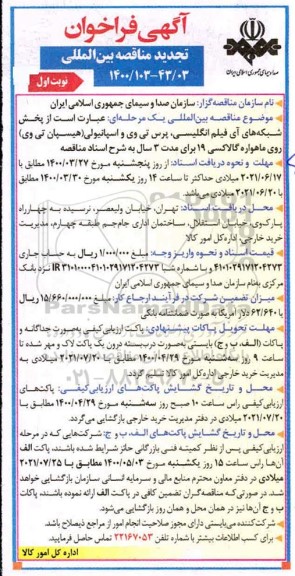 آگهی فراخوان
تجدید مناقصه بین‌المللی
۱۴۰۰/۱۰۳-۴۳/۰۳
نوبت اول
صدا و سیمای جمهوری اسلامی ایران
نام سازمان مناقصه‌گزار: سازمان صدا و سیمای جمهوری اسلامی ایران
موضوع مناقصه بین‌المللی یک مرحله‌ای: عبارت است از پخش
شبکه‌های آی فیلم انگلیسی، پرس تی وی و اسپانیولی(هیسپان تی وی)
روی ماهواره گالاکسی ۱۹ برای مدت ۳ سال به شرح اسناد مناقصه
مهلت و نحوه دریافت اسناد: از روز پنجشنبه مورخ ۱۴۰۰/۰۳/۲۷ مطابق با
۲۰۲۱/۰۶/۱۷ میلادی حداکثر تا ساعت ۱۴ روز یکشنبه مورخ ۱۴۰۰/۰۳/۳۰ مطابق
با ۲۰۲۱/۰۶/۲۰ میلادی می‌باشد.
محل دریافت اسناد: تهران، خیابان ولیعصر، نرسیده به چهارراه
پارک‌وی، خیابان استقلال، ساختمان اداری جام‌جم طبقه چهارم، مدیریت
خرید خارجی، اداره کل امور کالا
قیمت اسناد و نحوه واریز وجه: مبلغ ۱/۰۰۰/۰۰۰ ریال به حساب جاری
۴۱۰۱۰۲۹۱۷۱۲۰۴۲۷۳ و با شماره شبا IR ۳۱۰۱۰۰۰۰۴۱۰۱۰۲۹۱۷۱۲۰۴۲۷۳ نزد بانک
مرکزی به‌نام سازمان صدا و سیمای جمهوری اسلامی ایران
میزان تضمین شرکت در فرآیند ارجاع کار: مبلغ ۱۵/۶۶۰/۰۰۰/۰۰۰ ریال یا
۶۲/۶۴۰ دلار آمریکا به صورت ضمانتنامه بانکی
مهلت تحویل پاکات پیشنهادی: پاکت ارزیابی کیفی به‌صورت جداگانه و
پاکات (الف، ب و ج) بایستی به‌صورت دربسته درون یک پاکت لاک و مهر شده تا
ساعت ۹ روز سه‌شنبه مورخ ۱۴۰۰/۰۴/۲۹ مطابق با ۲۰۲۱/۰۷/۲۰ میلادی به
مدیریت خرید خارجی اداره کل امور کالا تسلیم گردد.
محل و تاریخ گشایش پاکت‌های ارزیابی‌کیفی: پاکت‌های
ارزیابی کیفی راس ساعت ۱۰ صبح روز سه‌شنبه مورخ ۱۴۰۰/۰۴/۲۹ مطابق با
۲۰۲۱/۰۷/۲۰ میلادی در دفتر مدیریت خرید خارجی بازگشایی می‌گردد.
محل و تاریخ گشایش پاکت‌های الف، ب و ج: شرکت‌هایی که در مرحله
ارزیابی کیفی پس از نظر کمیته فنی بازرگانی حائز شرایط شده باشند، پاکت الف
آن‌ها راس ساعت ۱۵ روز یکشنبه مورخ ۱۴۰۰/۰۵/۰۳ مطابق با ۲۰۲۱/۰۷/۲۵
میلادی در دفتر معاون محترم منابع مالی و سرمایه انسانی سازمان بازگشایی خواهد
شد. در صورتی‌که مناقصه‌گران تضمین کافی در پاکت الف ارائه نموده باشند، پاکات
ب و ج آن‌ها نیز در همان محل و همان روز بازگشایی می‌شود.
شرکت‌کننده می‌بایستی دارای مجوز صلاحیت انجام امور از مراجع ذیصلاح باشد.
برای کسب اطلاعات بیشتر با شماره تلفن ۲۲۱۶۷۰۵۳ تماس حاصل فرمایید.
اداره کل امور کالا